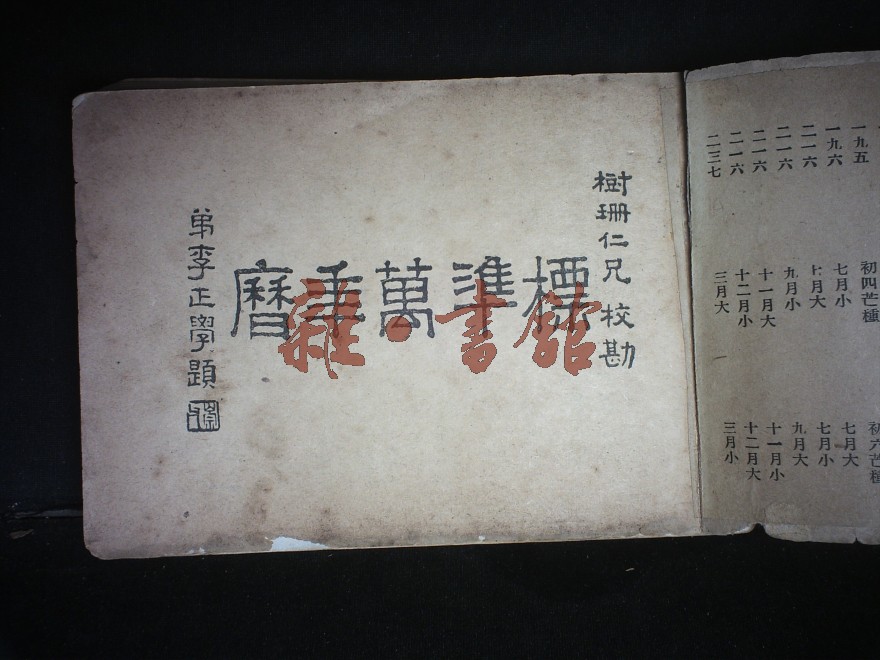 樹珊仁兄校勘
標準萬年曆
弟李正學題
雜·書館
一九五
一九六
二一六
二一六
二一六
二一六
二三七
初四芒種
七月小
七月大
九月小
十一月大
十二月小
三月大
初六芒種
七月大
七月小
九月大
十一月小
十二月大
三月小